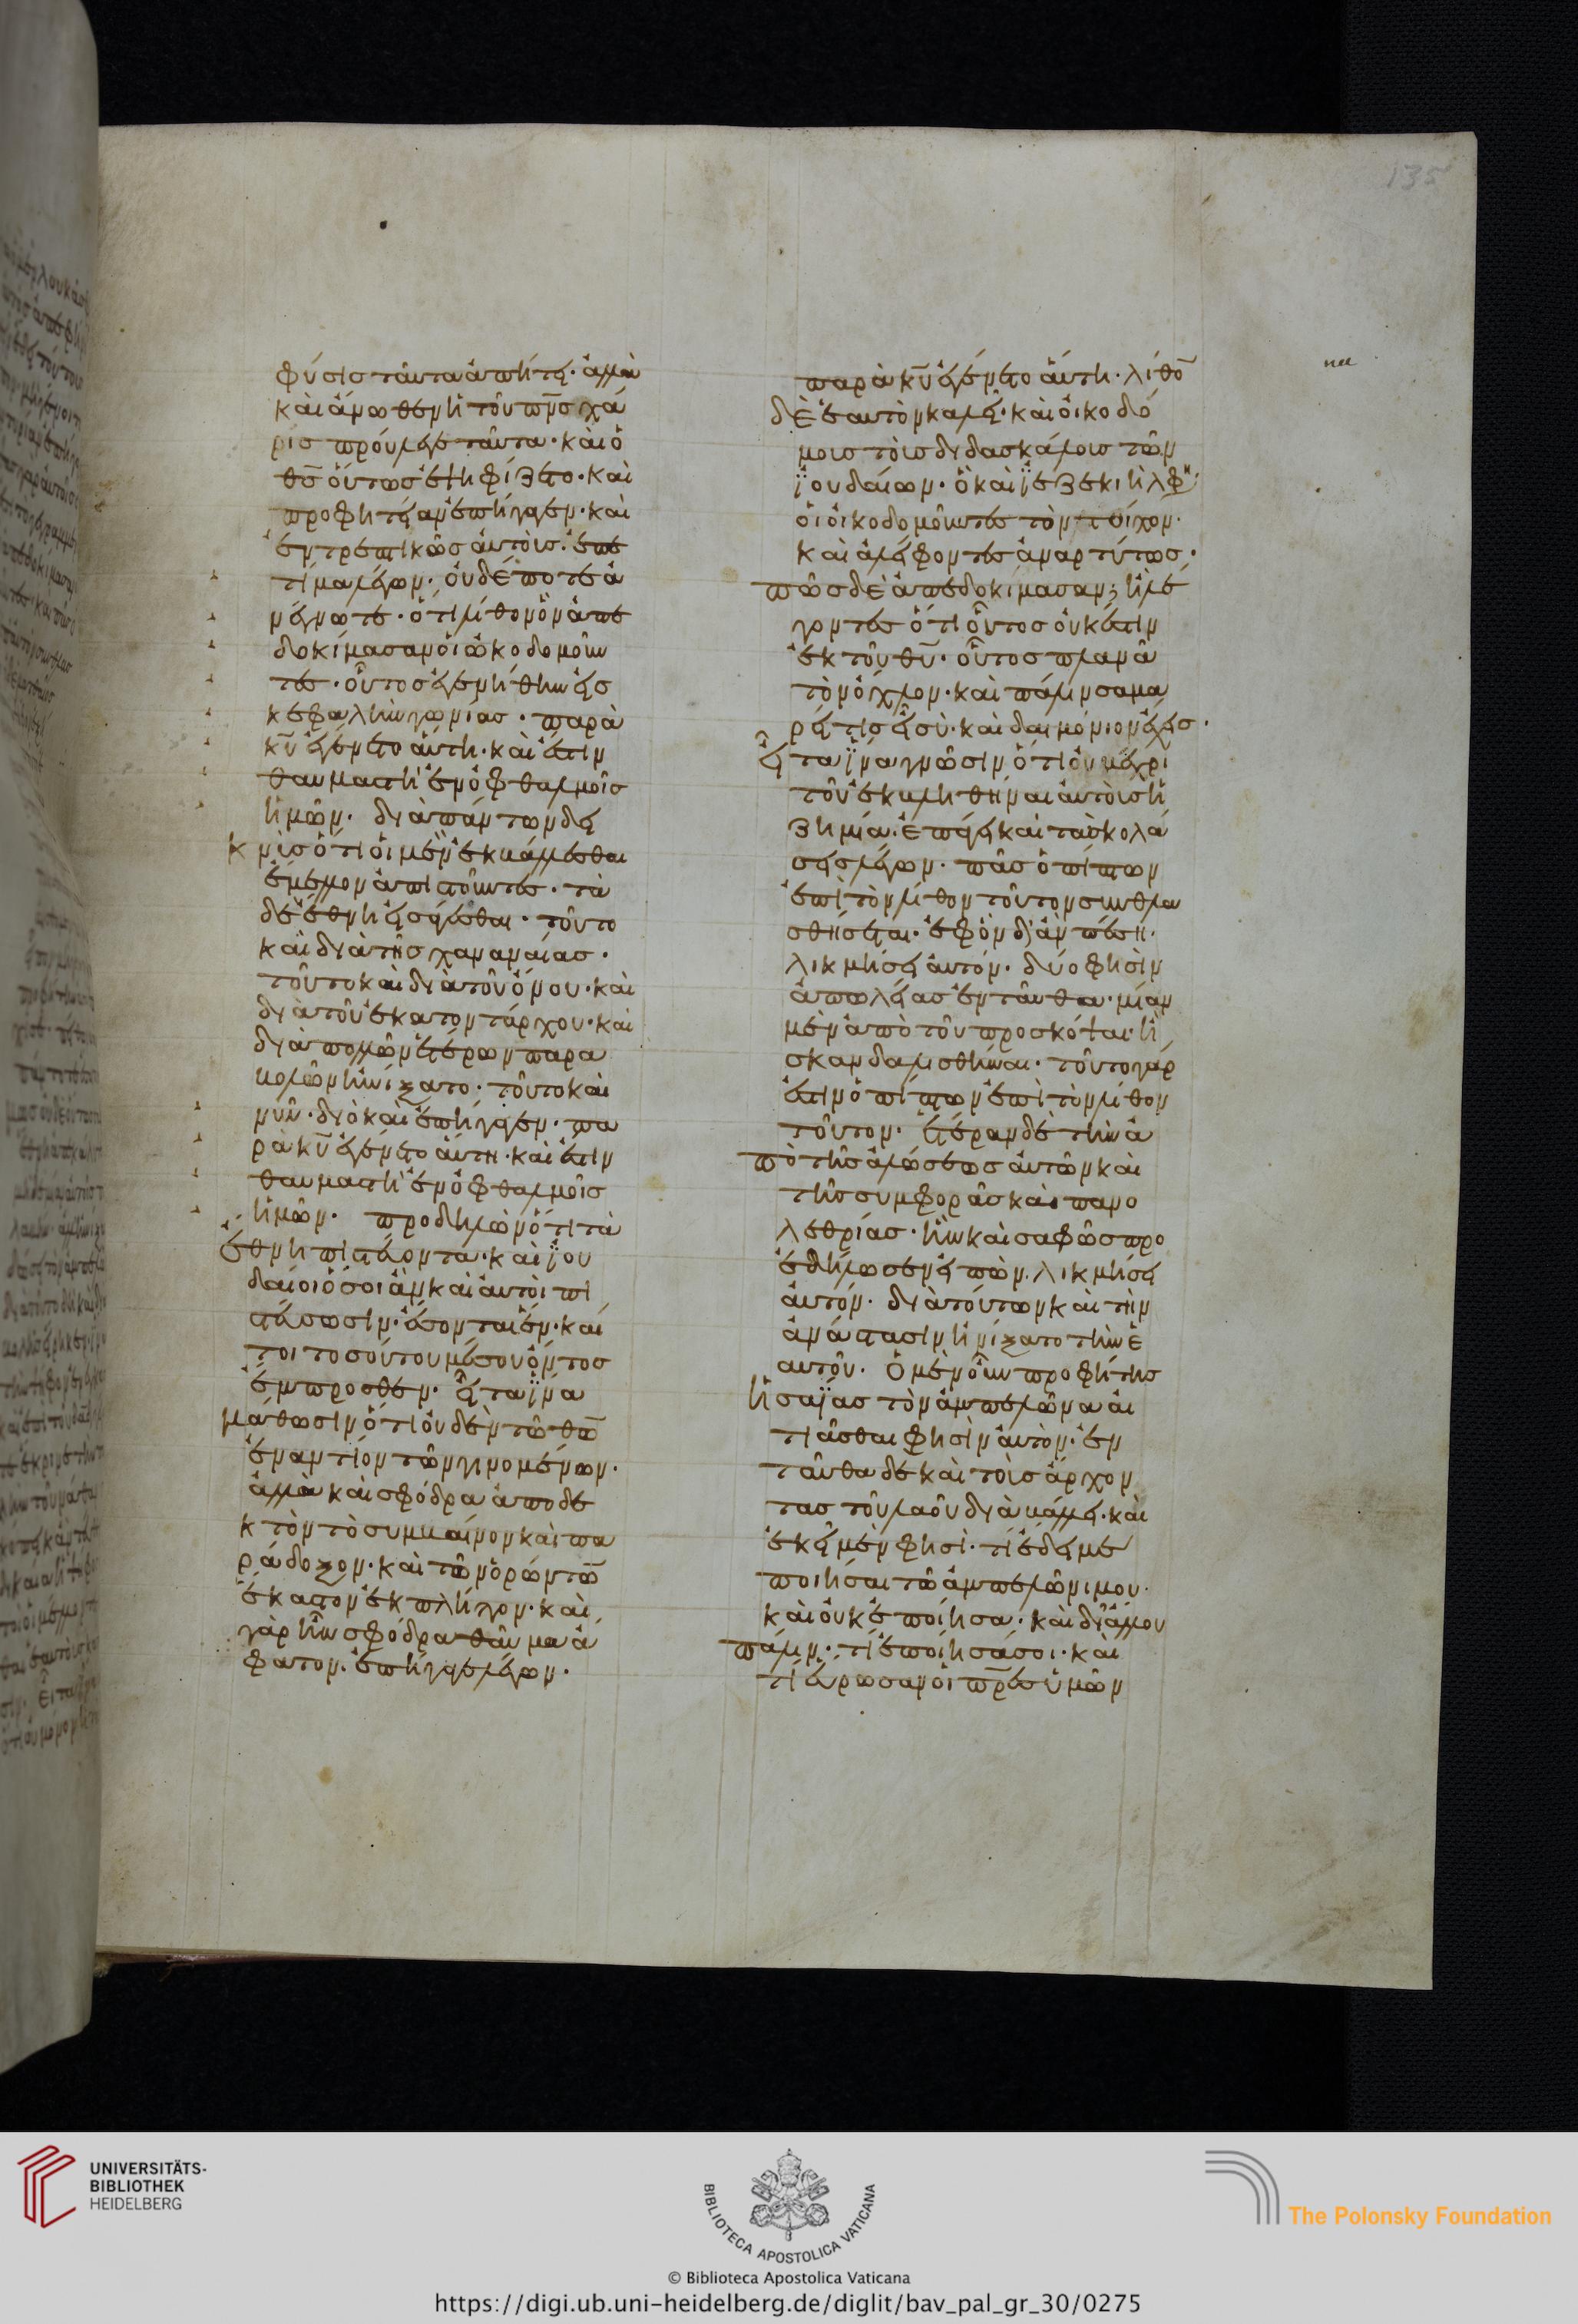 135
φύσις ταῦτα ἀπήτει· ἀλλὰ
καὶ ἄνωθεν ἡ τοῦ πν̅ς χά
ρις προύλεγε ταῦτα· καὶ ὁ
θς̅ οὕτως ἐψηφίζετο· καὶ
προφήτειαν ἐπήγαγεν· καὶ
ἐντρεπτικῶς αὐτοῖς ἐπε
τίμα λέγων· οὐδέποτε ἀ
νέγνωτε· ὅτι λίθον ὃν ἀπε
δοκίμασαν οἱ οἰκοδομοῦν
τες· οὗτος ἐγενήθη εἰς
κεφαλὴν γωνίας· παρὰ
κυ̅ ἐγένετο αὕτη· καὶ ἔστιν
θαυμαστὴ ἐν ὀφθαλμοῖς
ἡμῶν· διὰ πάντων δει
κνὺς ὅτι οἱ μὲν ἐκβάλλεσθαι
ἔμελλον ἀπιστοῦντες· τὰ
δὲ ἔθνη εἰσάγεσθαι· τοῦτο
καὶ διὰ τῆς χαναναίας·
τοῦτο καὶ διὰ τοῦ ὄνου· καὶ
διὰ τοῦ ἑκατοντάρχου· καὶ
διὰ πολλῶν ἑτέρων παρα
βολῶν ἠνίξατο· τοῦτο καὶ
νῦν· διὸ καὶ ἐπήγαγεν· πα
ρὰ κυ̅ ἐγένετο αὕτη· καὶ ἔστιν
θαυμαστὴ ἐν ὀφθαλμοῖς
ἡμῶν· προδηλῶν ὅτι τὰ
ἔθνη πιστεύοντα· καὶ ϊου
δαίοι ὅσοι ἂν καὶ αὐτοὶ πι
στεύσωσιν· ἔσονται ἕν· καί
τοι τοσούτου μέσου ὄντος
ἔμπροσθεν· εἶτα ἵνα
μάθωσιν ὅτι οὐδὲν τῶ θω̅
ἐναντίον τῶν γινομένων·
ἀλλὰ καὶ σφόδρα ἀποδε
κτὸν τὸ συμβαῖνον καὶ πα
ράδοξον· καὶ τῶν ὁρώντω̅
ἕκαστον ἐκπλήττον· καὶ
γὰρ ἦν σφόδρα θαῦμα ἄ
φατον· ἐπήγαγε λέγων·
παρὰ κυ̅ ἐγένετο αὕτη· λίθο̅
δὲ ἑαυτὸν καλεῖ· καὶ οἰκοδό
μους τοὺς διδασκάλους τῶν
ϊουδαίων· ὃ καὶ ϊεζεκιήλ φησιν·
οἱ οἰκοδομοῦντες τὸν τοῖχον·
καὶ ἀλείφοντες ἀναρτύτως·
πῶς δὲ ἀπεδοκίμασαν; ἢ λέ
γοντες ὅτι οὗτος οὐκ ἔστιν
ἐκ τοῦ θυ̅· οὗτος πλανᾶ
τὸν ὄχλον· καὶ πάλιν σαμα
ρείτης εἶ σύ· καὶ δαιμόνιον ἔχεις·
εἶτα ἵνα γνῶσιν ὅτι οὐ μέχρι
τοῦ ἐκβληθῆναι αὐτοῖς ἡ
ζημία· ἐπάγει καὶ τὰς κολά
σεις λέγων· πᾶς ὁ πίπτων
ἐπὶ τὸν λίθον τοῦτον συνθλα
σθήσεται· ἐφ' ὃν δ' ἂν πέση·
λικμήσει αὐτόν· δύο φησὶν
ἀπωλείας ἐνταῦθα· μίαν
μὲν ἀπὸ τοῦ προσκόψαι· ἢ
σκανδαλισθῆναι· τοῦτο γάρ
ἐστιν ὁ πίπτων ἐπὶ τὸν λίθον
τοῦτον· ἑτέραν δὲ τὴν ἀ
πὸ τῆς ἁλώσεως αὐτῶν καὶ
τῆς συμφορᾶς καὶ πανο
λεθρίας· ἣν καὶ σαφῶς προ
εδήλωσεν εἰπών· λικμήσει
αὐτόν· διὰ τούτων καὶ τὴν
ἀνάστασιν ἠνίξατο τὴν ἑ
αυτοῦ· ὁ μὲν οὖν προφήτης
ἡσαΐας τὸν ἀμπελῶνα αἰ
τιᾶσθαι φησὶν αὐτόν· ἐν
ταῦθα δὲ καὶ τοὺς ἄρχον
τας τοῦ λαοῦ διαβάλλει· καὶ
ἐκεῖ μέν φησι· τί ἔδει με
ποιῆσαι τῶ ἀμπελῶνι μου·
καὶ οὐκ ἐποίησα· καὶ δι' ἄλλου
πάλιν· τί ἐποίησά σοι· καὶ
τί εὕρωσαν οἱ πρ̅ες ὑμῶν
UNIVERSITÄTS-
BIBLIOTHEK
HEIDELBERG
BIBLIOTECA APOSTOLICA VATICANA
© Biblioteca Apostolica Vaticana
The Polonsky Foundation
https://digi.ub.uni-heidelberg.de/diglit/bav_pal_gr_30/0275